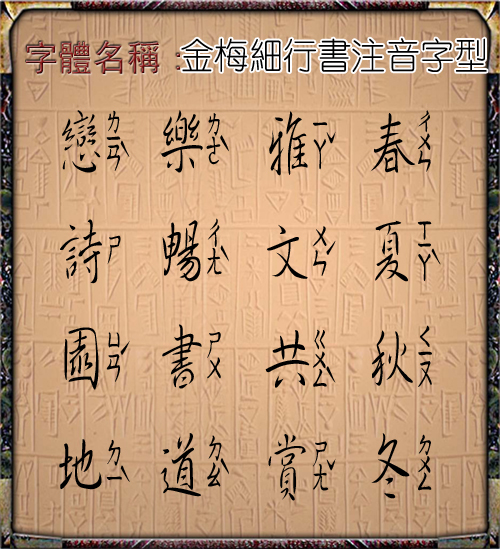 字體名稱 :金梅細行書注音字型
春ㄔㄨㄣ夏ㄒㄧㄚˋ秋ㄑㄧㄡ冬ㄉㄨㄥ
雅ㄧㄚˇ文ㄨㄣˊ共ㄍㄨㄥˋ賞ㄕㄤˇ
樂ㄌㄜˋ暢ㄔㄤˋ書ㄕㄨ道ㄉㄠˋ
戀ㄌㄧㄢˋ詩ㄕ園ㄩㄢˊ地ㄉㄧˋ